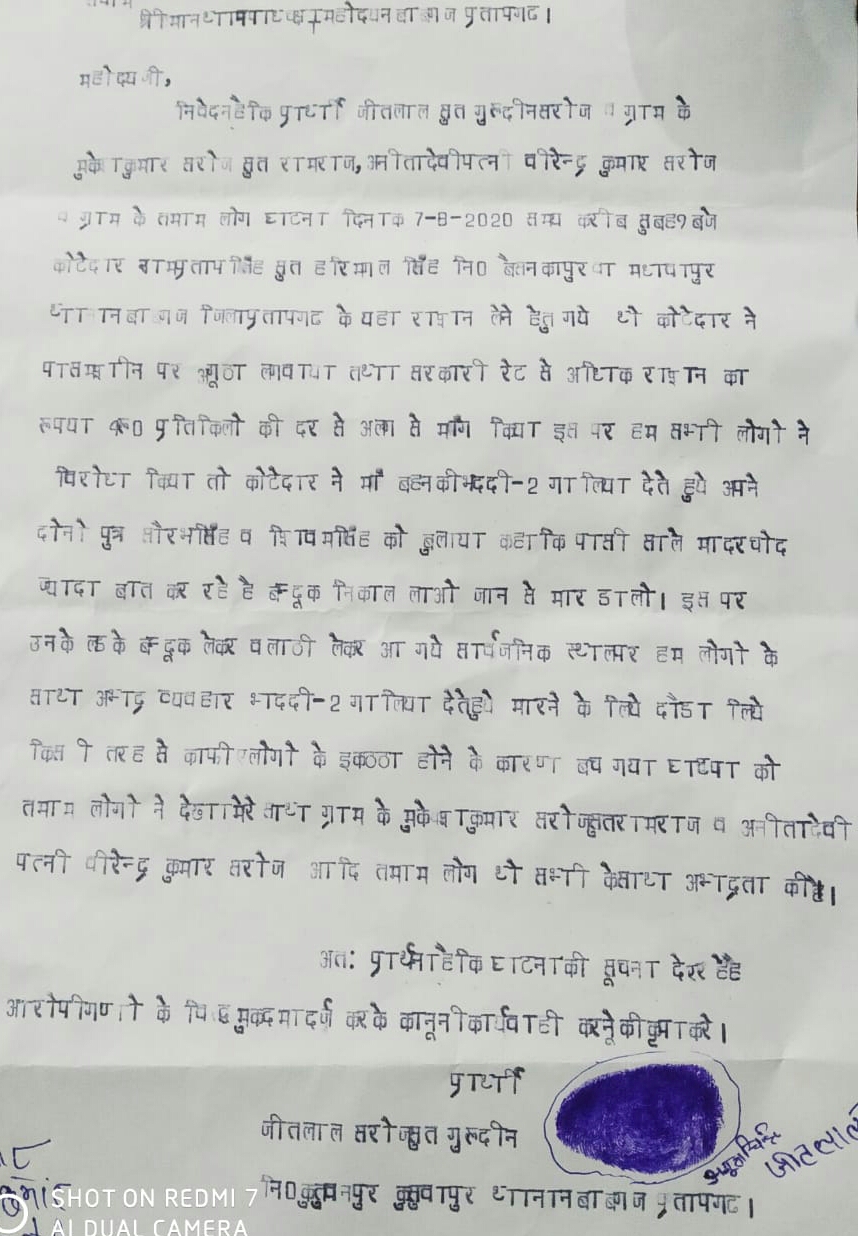 श्रीमान थानाध्यक्ष महोदय नबाबगज प्रतापगढ।
महोदय जी,
निवेदन है कि प्रार्थी जीतलाल सुत गुरूदीन सरोज व ग्राम के
मुकेशकुमार सरोज सुत रामराज, अनीतादेवी पत्नी वीरेन्द्र कुमार सरोज
व ग्राम के तमाम लोग घटना दिनाक 7-8-2020 समय करीब सुबह 9 बजे
कोटेदार रामप्रताप सिंह सुत हरिपाल सिंह नि0 मधावापुर
थाना नबाबगज जिला प्रतापगढ के यहा राशन लेने हेतु गये थे कोटेदार ने
पास मशीन पर अगूठा लगवाया तथा सरकारी रेट से अधिक राशन का
रूपया प्रतिकिलो की दर से अलग से माँग किया इस पर हम सभी लोगो ने
विरोध किया तो कोटेदार ने माँ बहन की भददी-2 गालिया देते हुये अपने
दोनो पुत्र सौरभ सिंह व शिवम सिंह को बुलाया कहा कि पासी साले मादरचोद
ज्यादा बात कर रहे है बन्दूक निकाल लाओ जान से मार डालो। इस पर
उनके लडके बन्दूक लेकर व लाठी लेकर आ गये सार्वजनिक स्थल पर हम लोगो के
साथ अभद्र व्यवहार भददी-2 गालिया देते हुये मारने के लिये दौडा लिये
किसी तरह से काफी लोगो के इकठठा होने के कारण बच गया घटना को
तमाम लोगो ने देखा मेरे साथ ग्राम के मुकेशकुमार सरोज सुत रामराज व अनीतादेवी
पत्नी वीरेन्द्र कुमार सरोज आदि तमाम लोग थे सभी के साथ अभद्रता की है।
अत: प्रार्थना है कि घटना की सूचना दे रहे है
आरोपीगणो के विरूद्ध मुकदमा दर्ज करके कानूनी कार्यवाही करने की कृपा करे।
प्रार्थी
जीतलाल सरोज सुत गुरूदीन
जीतलाल
नि0 थाना नबाबगज प्रतापगढ।
SHOT ON REDMI 7
AI DUAL CAMERA